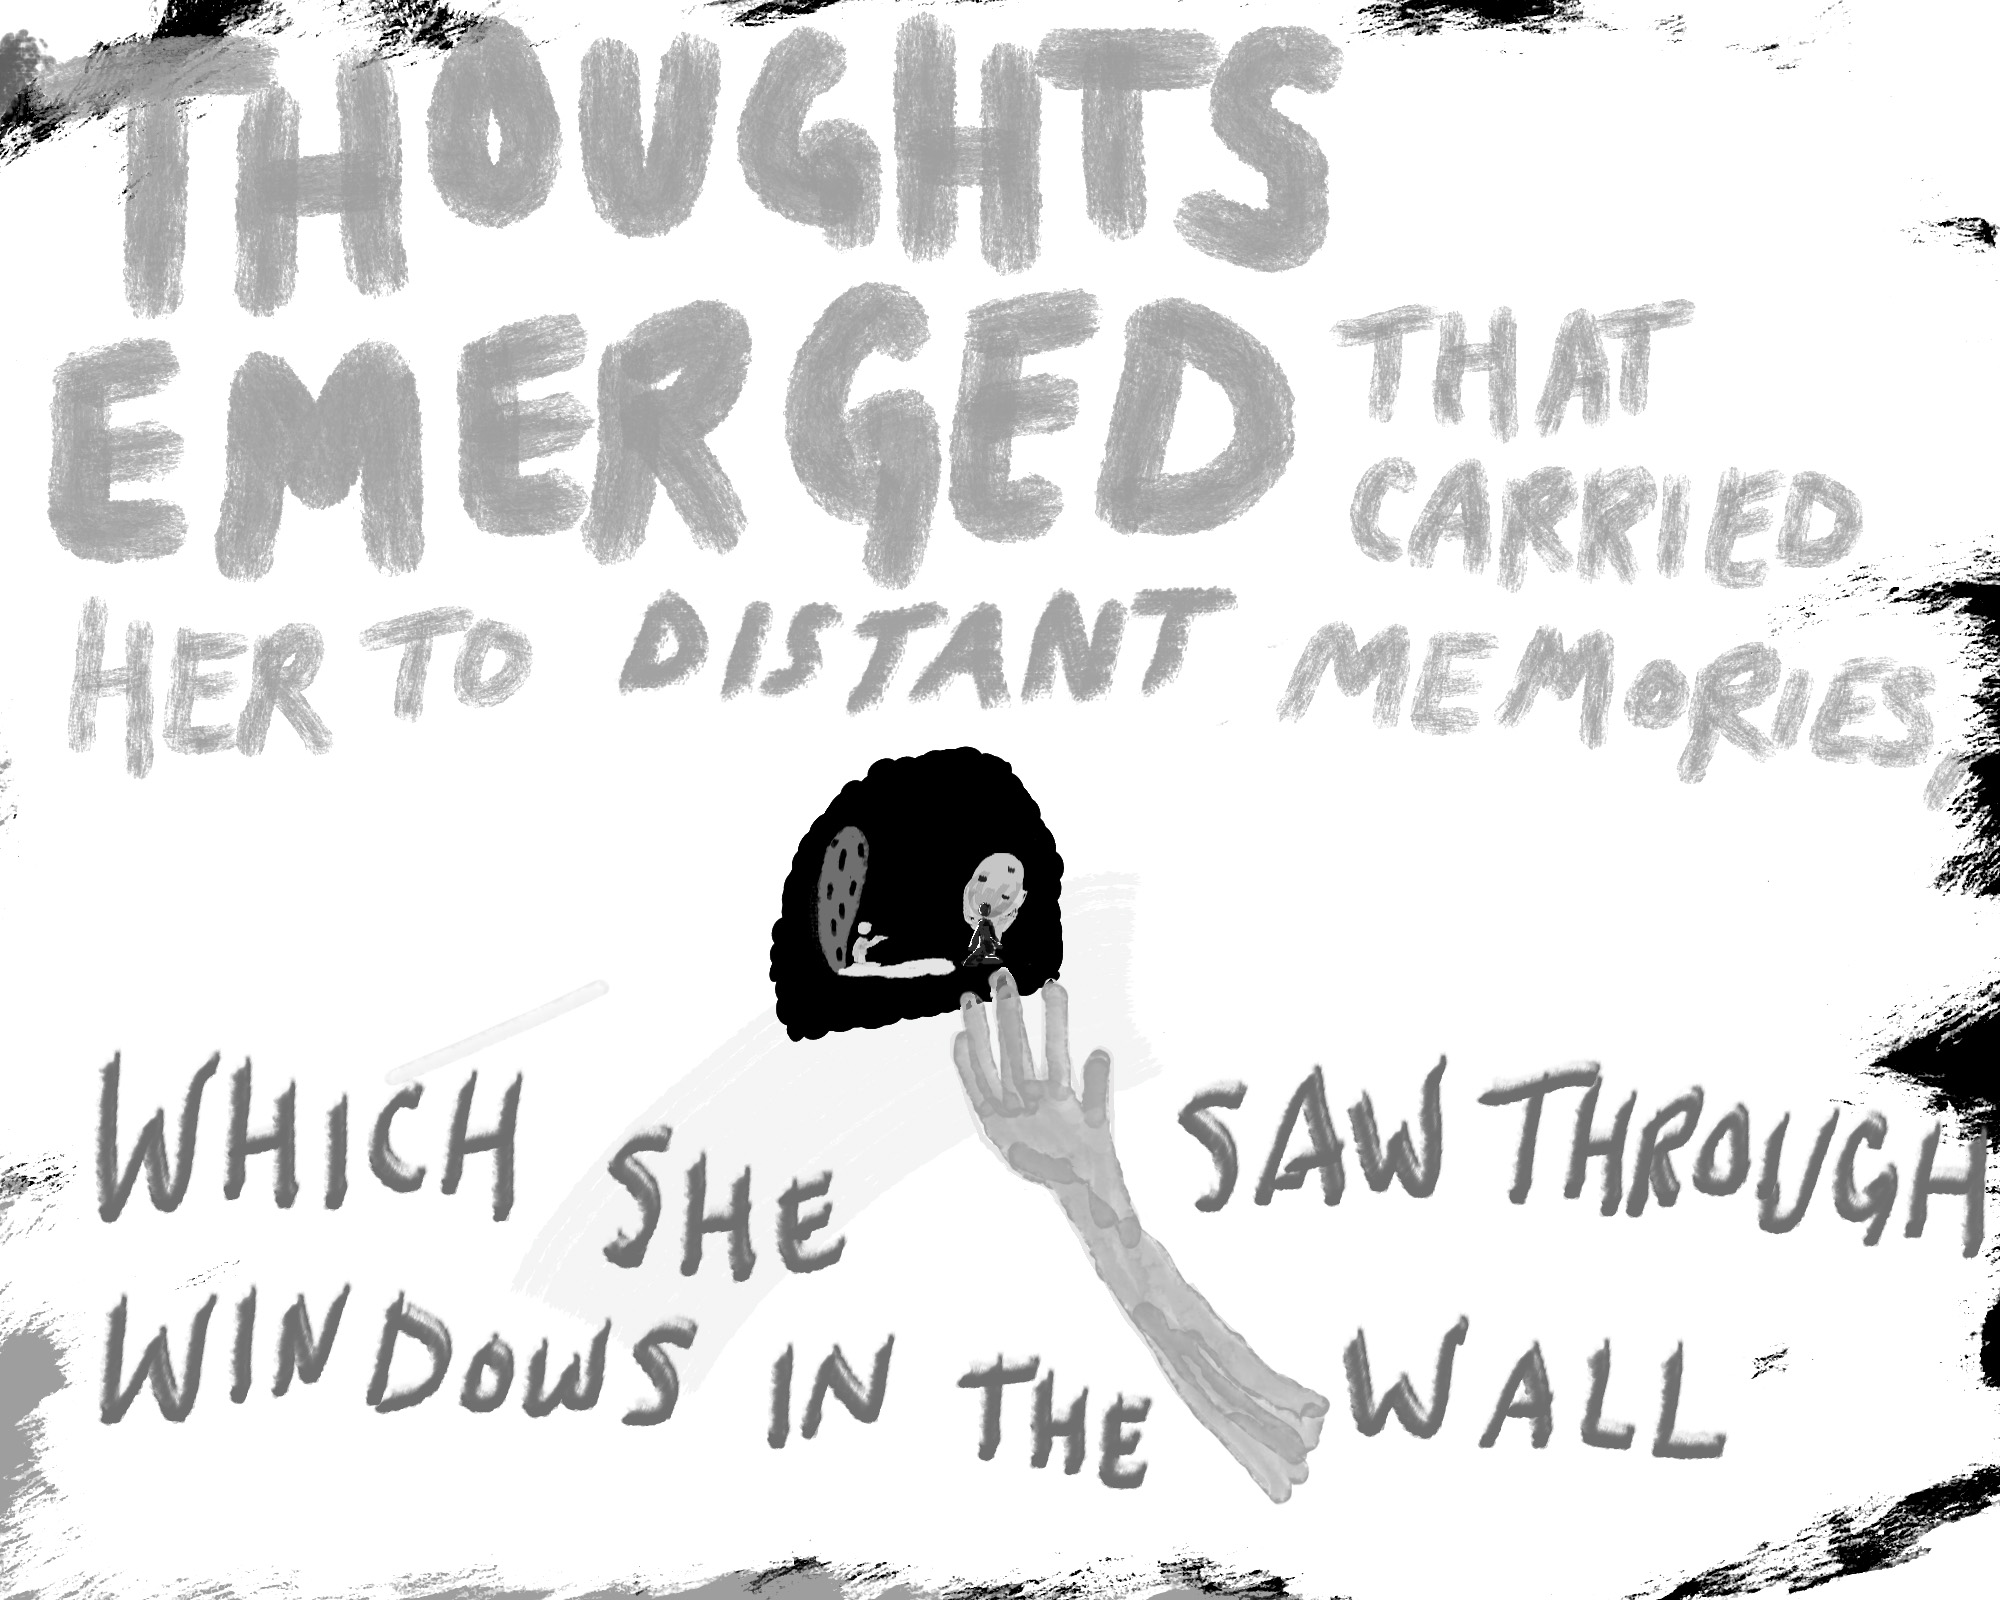 THOUGHTS
EMERGED THAT
CARRIED
HER TO DISTANT MEMORIES,
WHICH SHE SAW THROUGH
WINDOWS IN THE WALL